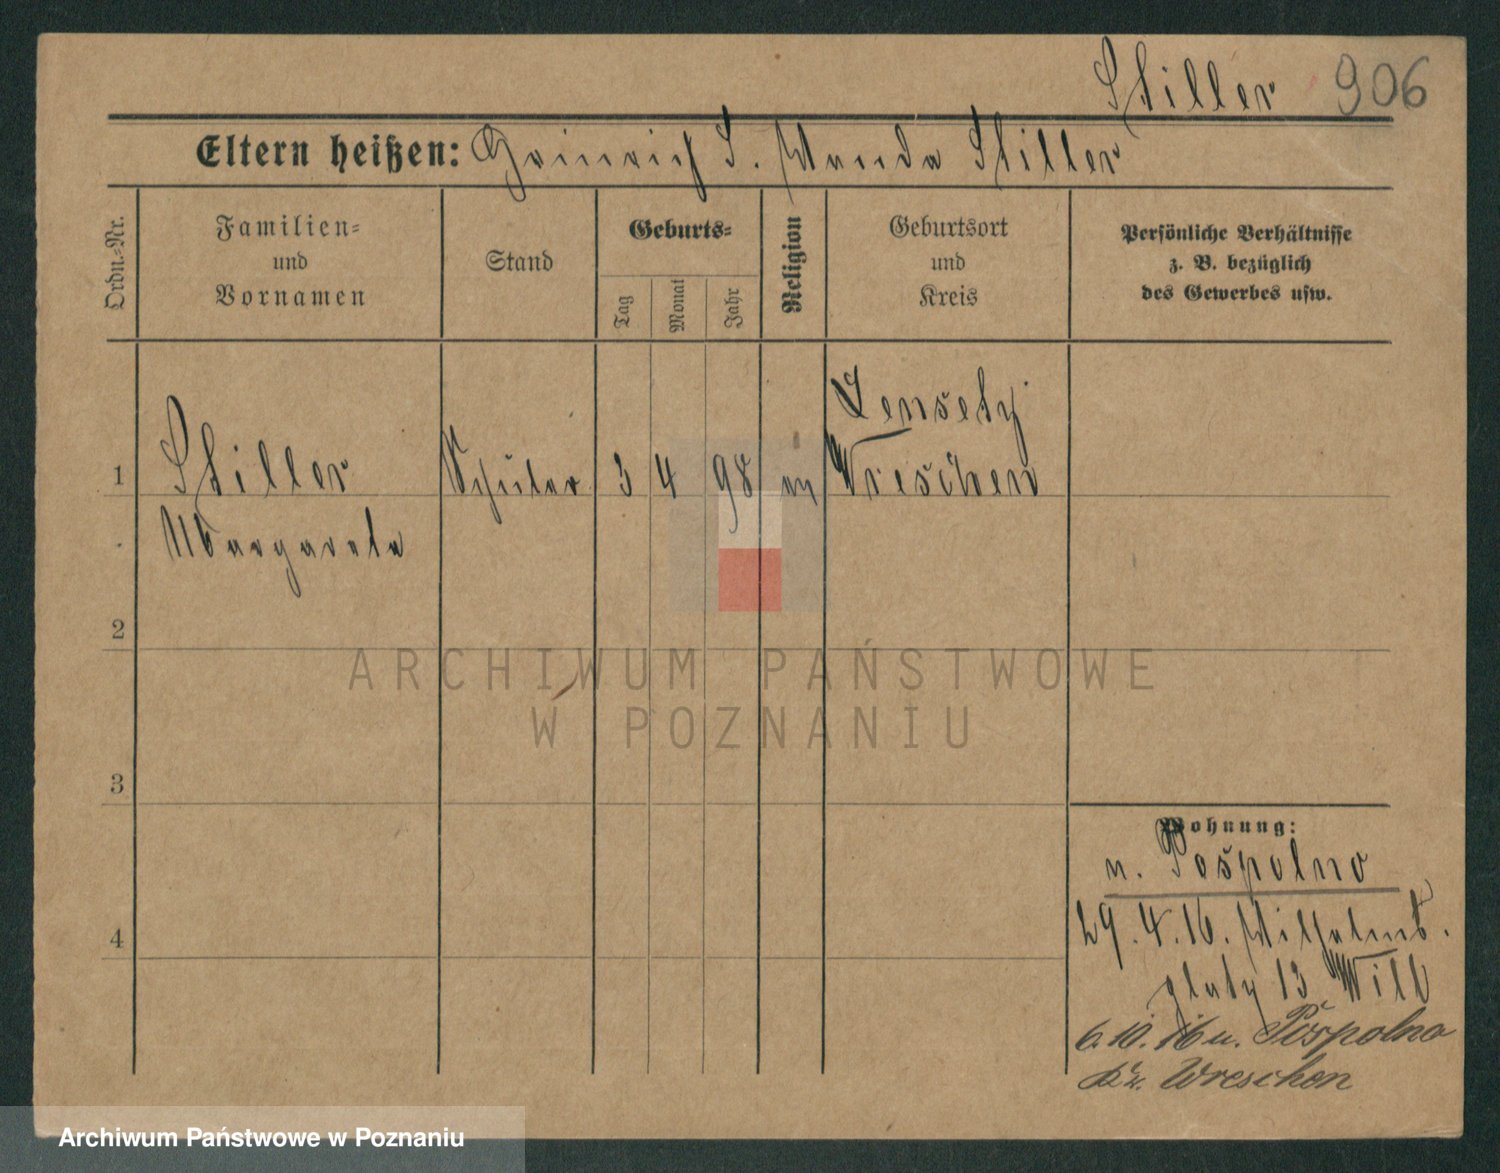 Stiller 906
Eltern heißen: Heinrich S. Wanda Stiller
Ordn.-Nr.
Familien-
und
Vornamen
Stand
Geburts-
Tag
Monat
Jahr
Religion
Geburtsort
und
Kreis
Persönliche Verhältnisse
z. B. bezüglich
des Gewerbes usw.
1
Stiller
Margarete
Schüler
3 4 98
Wreschen
2
3
4
Wohnung:
n. Pospolno
29. 4. 16. Wilhelms.
platz 13
6. 10. 16 n. Pospolno
Kr. Wreschen
ARCHIWUM PAŃSTWOWE
W POZNANIU
Archiwum Państwowe w Poznaniu